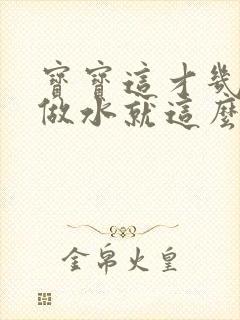 寶寶這才幾
做水就這麼
金帛火皇